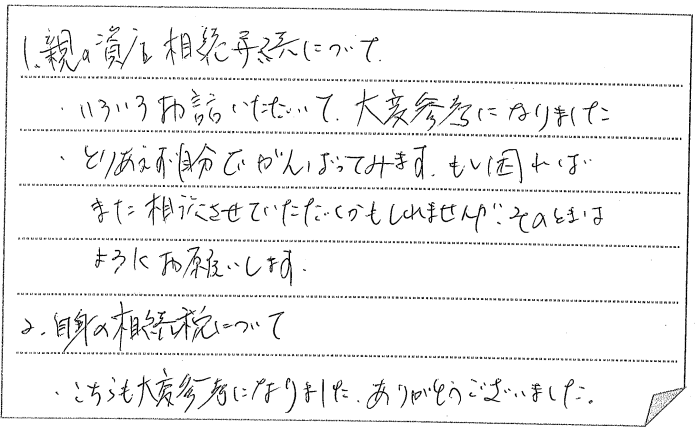 1.親の資産相続手続について.
・いろいろお話いただいて、大変参考になりました
・とりあえず自分でがんばってみます. もし困れば
また相談させていただくかもしれませんが、そのときは
よろしくお願いします.
2.自身の相続税について
・こちらも大変参考になりました. ありがとうございました。